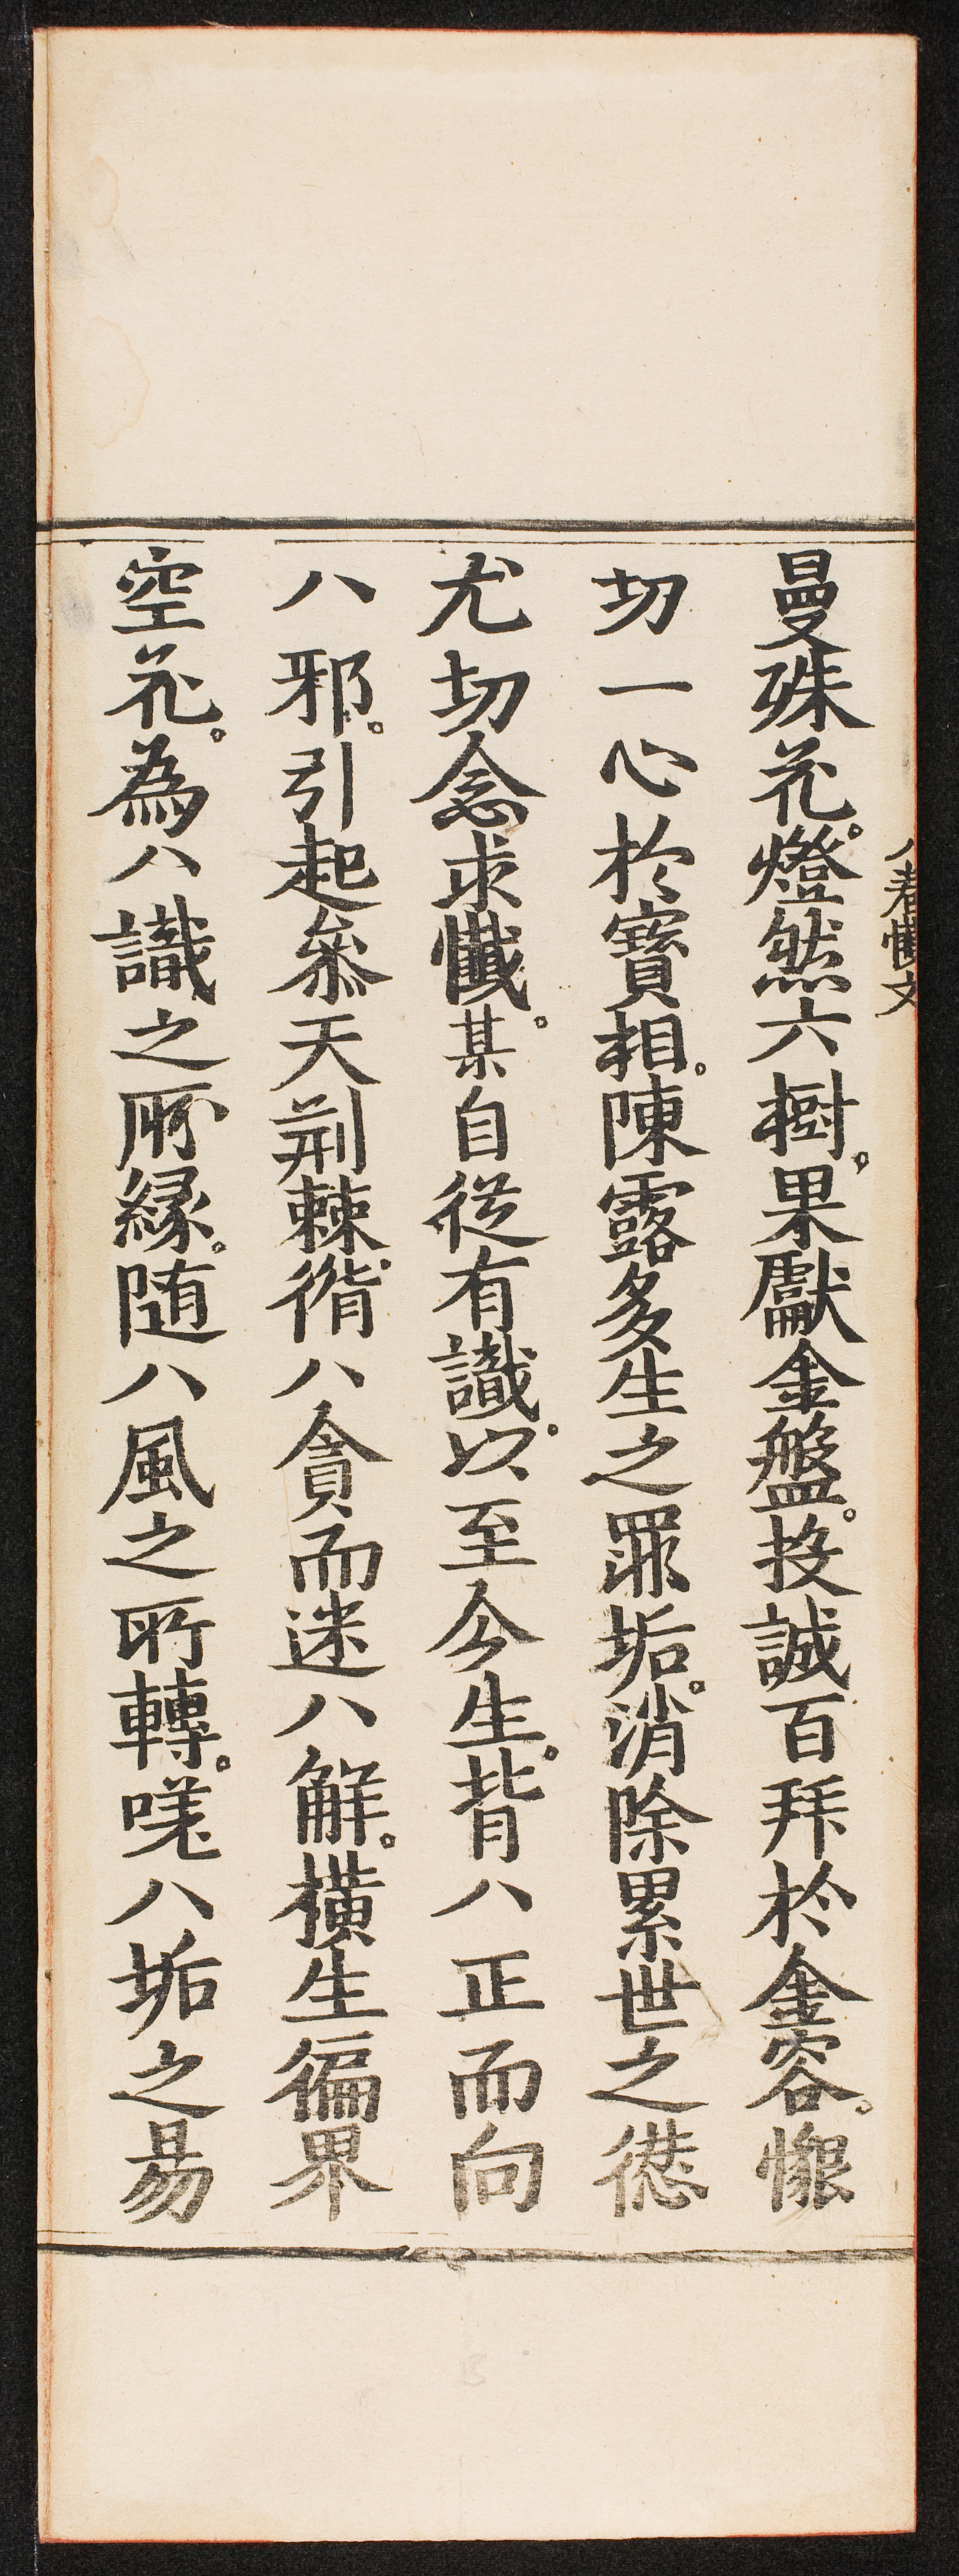 八卷懺文
曼殊花。燈然六樹。果獻金盤。投誠百拜於金容。懇
切一心於寶相。陳露多生之罪垢。消除累世之愆
尤切念求懺。某自從有識。以至今生。背八正而向
八邪。引起叅天荊棘。循八貪而迷八解。橫生徧界
空花。為八識之所緣。随八風之所轉。嗟八垢之易